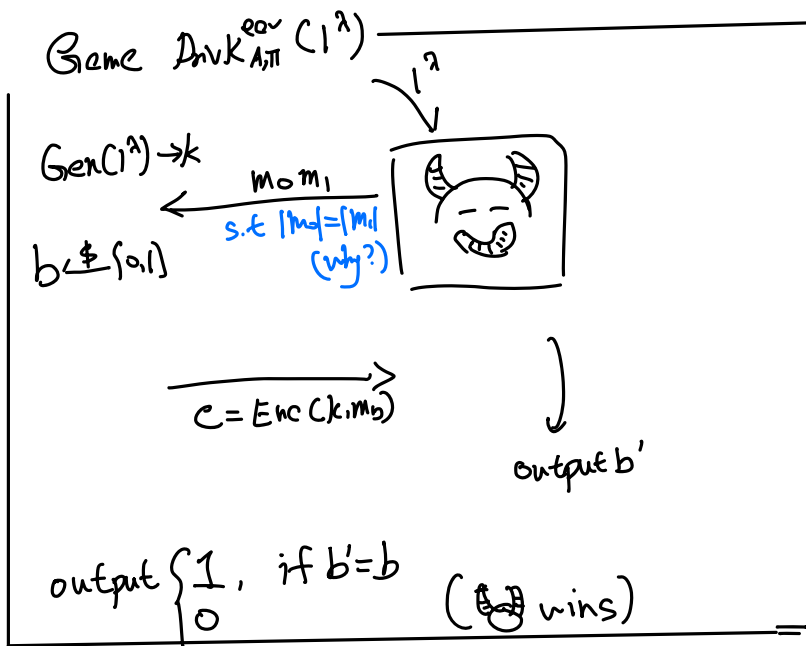 Game PrivK^{eav}_{A,Π}(1^λ)
1^λ
Gen(1^λ)→k
m₀ m₁
s.t |m₀|=|m₁|
(why?)
b <-$- {0,1}
c = Enc(k,m_b)
output b'
output { 1, if b'=b
0
( wins)